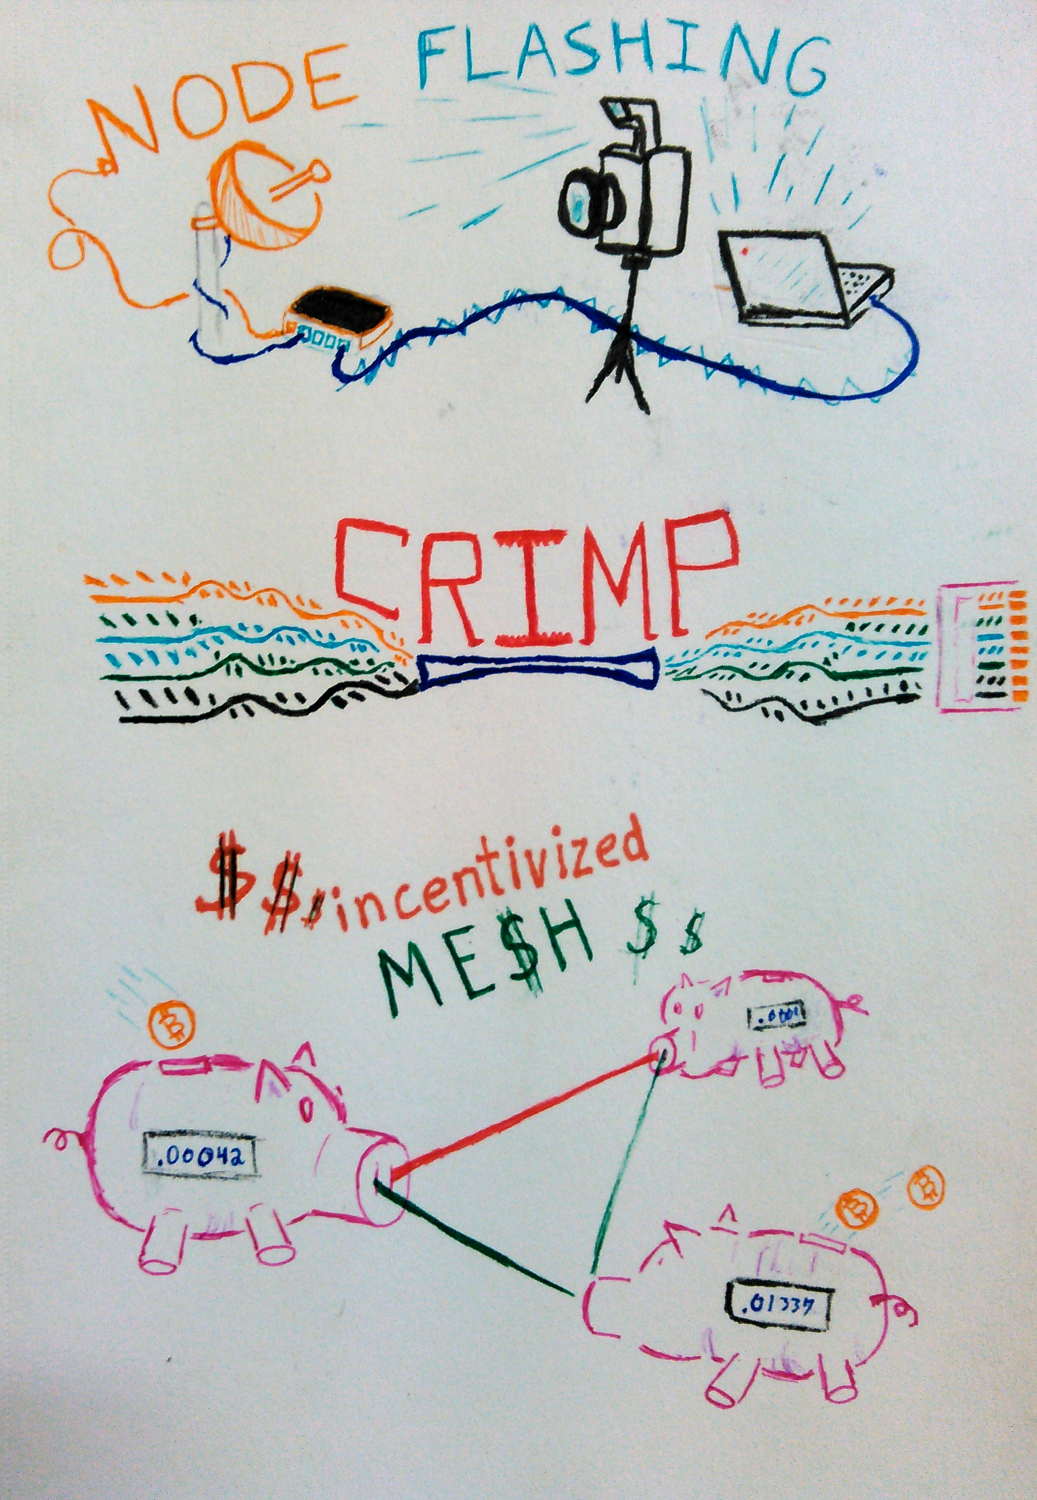 NODE FLASHING
CRIMP
$$$incentivized
ME$H $$
.0001
.00042
.01337